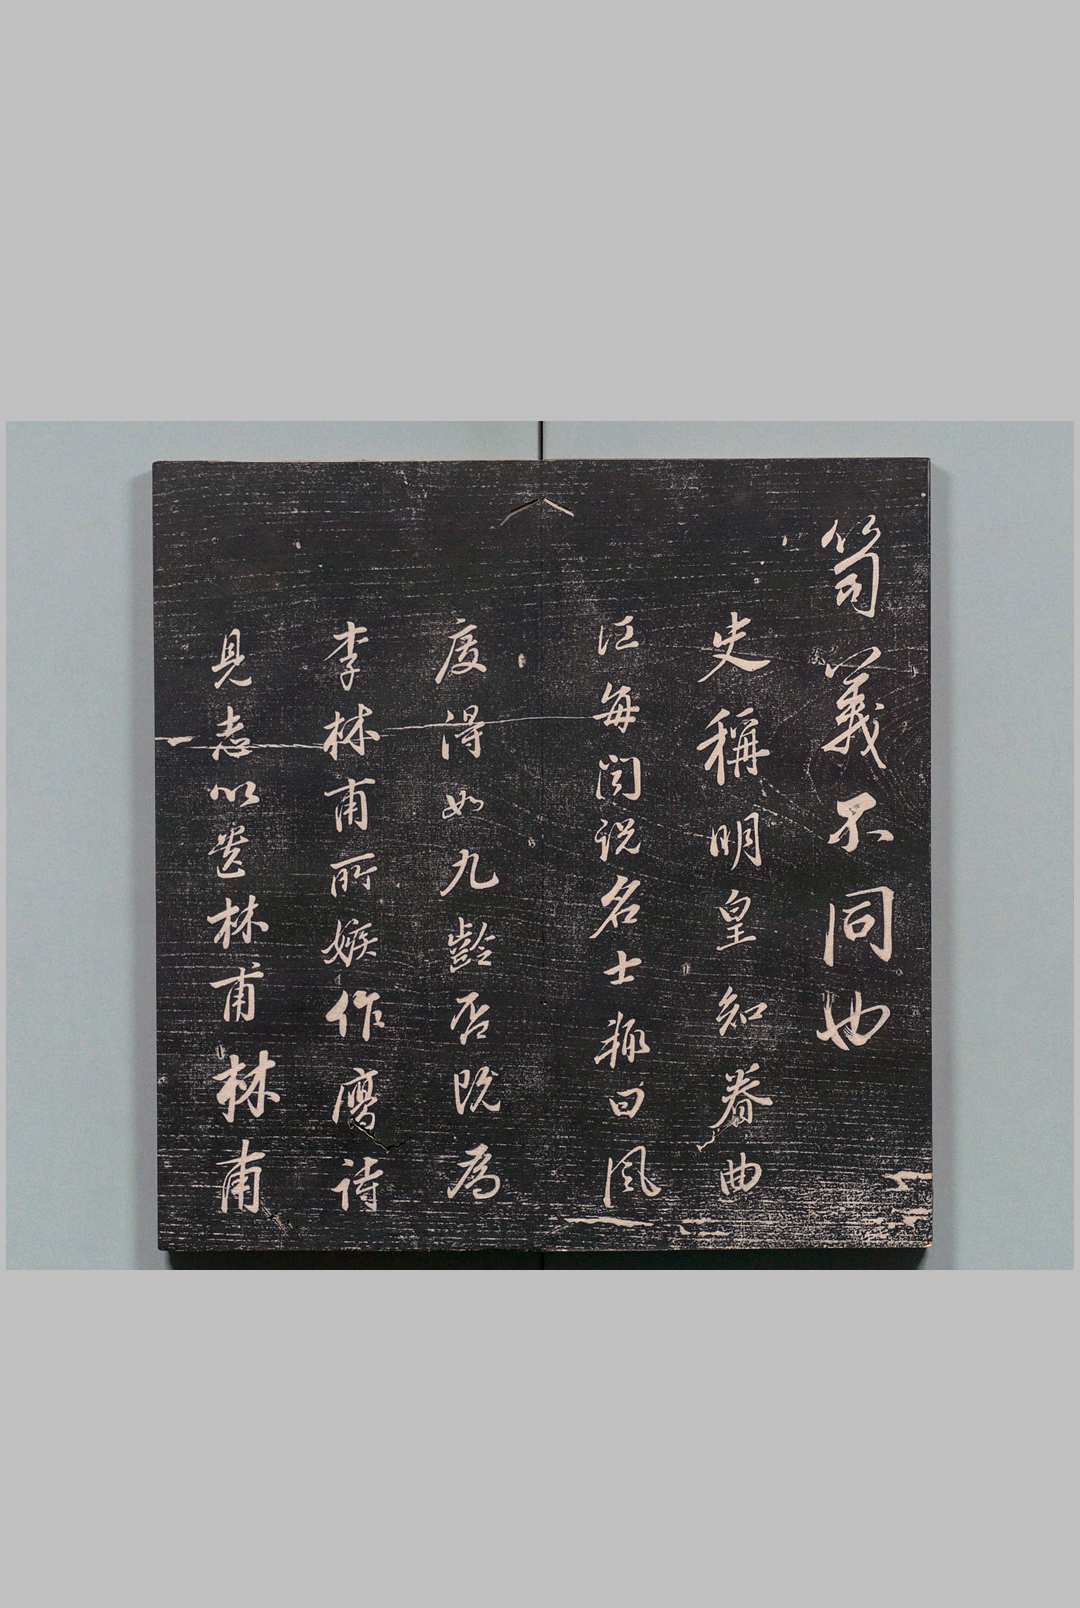 笥義不同也
史稱明皇知眷曲
江每問說名士輒曰風
度得如九齡否既為
李林甫所嫉作鷹詩
見志以遺林甫林甫